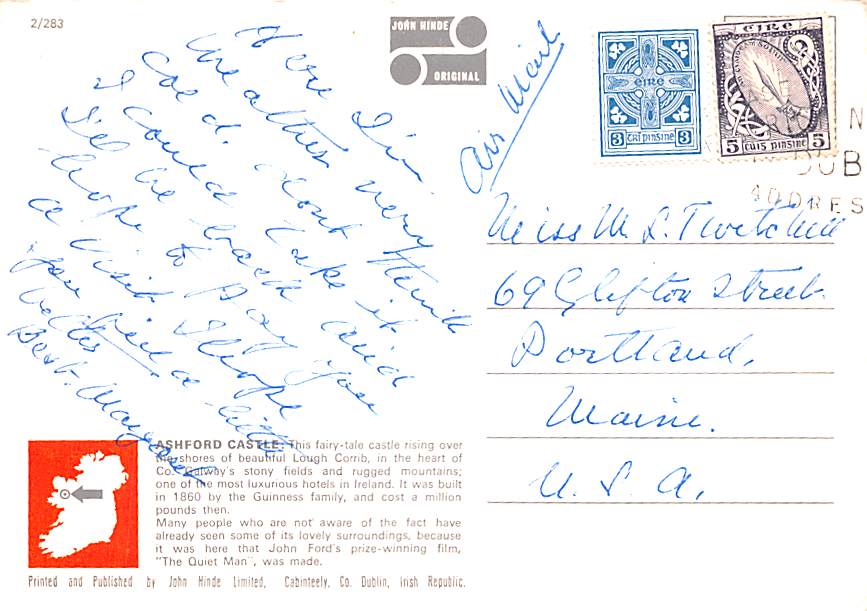 2/283
JOHN HINDE
ORIGINAL
Air Mail
EIRE
3 TRÍ PINSINE 3
EIRE
5 CUIG PINSINE 5
N
DUB
ADDRES
here I'm very
weather think
Co. Galway's stony fields and rugged mountains;
I could take it
I'll be back and
hope to pay you
a visit. I hope
you feel a little
better.
Best. Margaret
Miss M. L. Twitchell
69 Clifton Street
Portland,
Maine.
U. S. A.
ASHFORD CASTLE: This fairy-tale castle rising over
the shores of beautiful Lough Corrib, in the heart of
one of the most luxurious hotels in Ireland. It was built
in 1860 by the Guinness family, and cost a million
pounds then.
Many people who are not aware of the fact have
already seen some of its lovely surroundings, because
it was here that John Ford's prize-winning film,
"The Quiet Man", was made.
Printed and Published by John Hinde Limited, Cabinteely, Co. Dublin, Irish Republic.